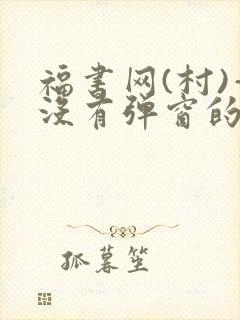 福书网(村)-
没有弹窗的
孤暮笙